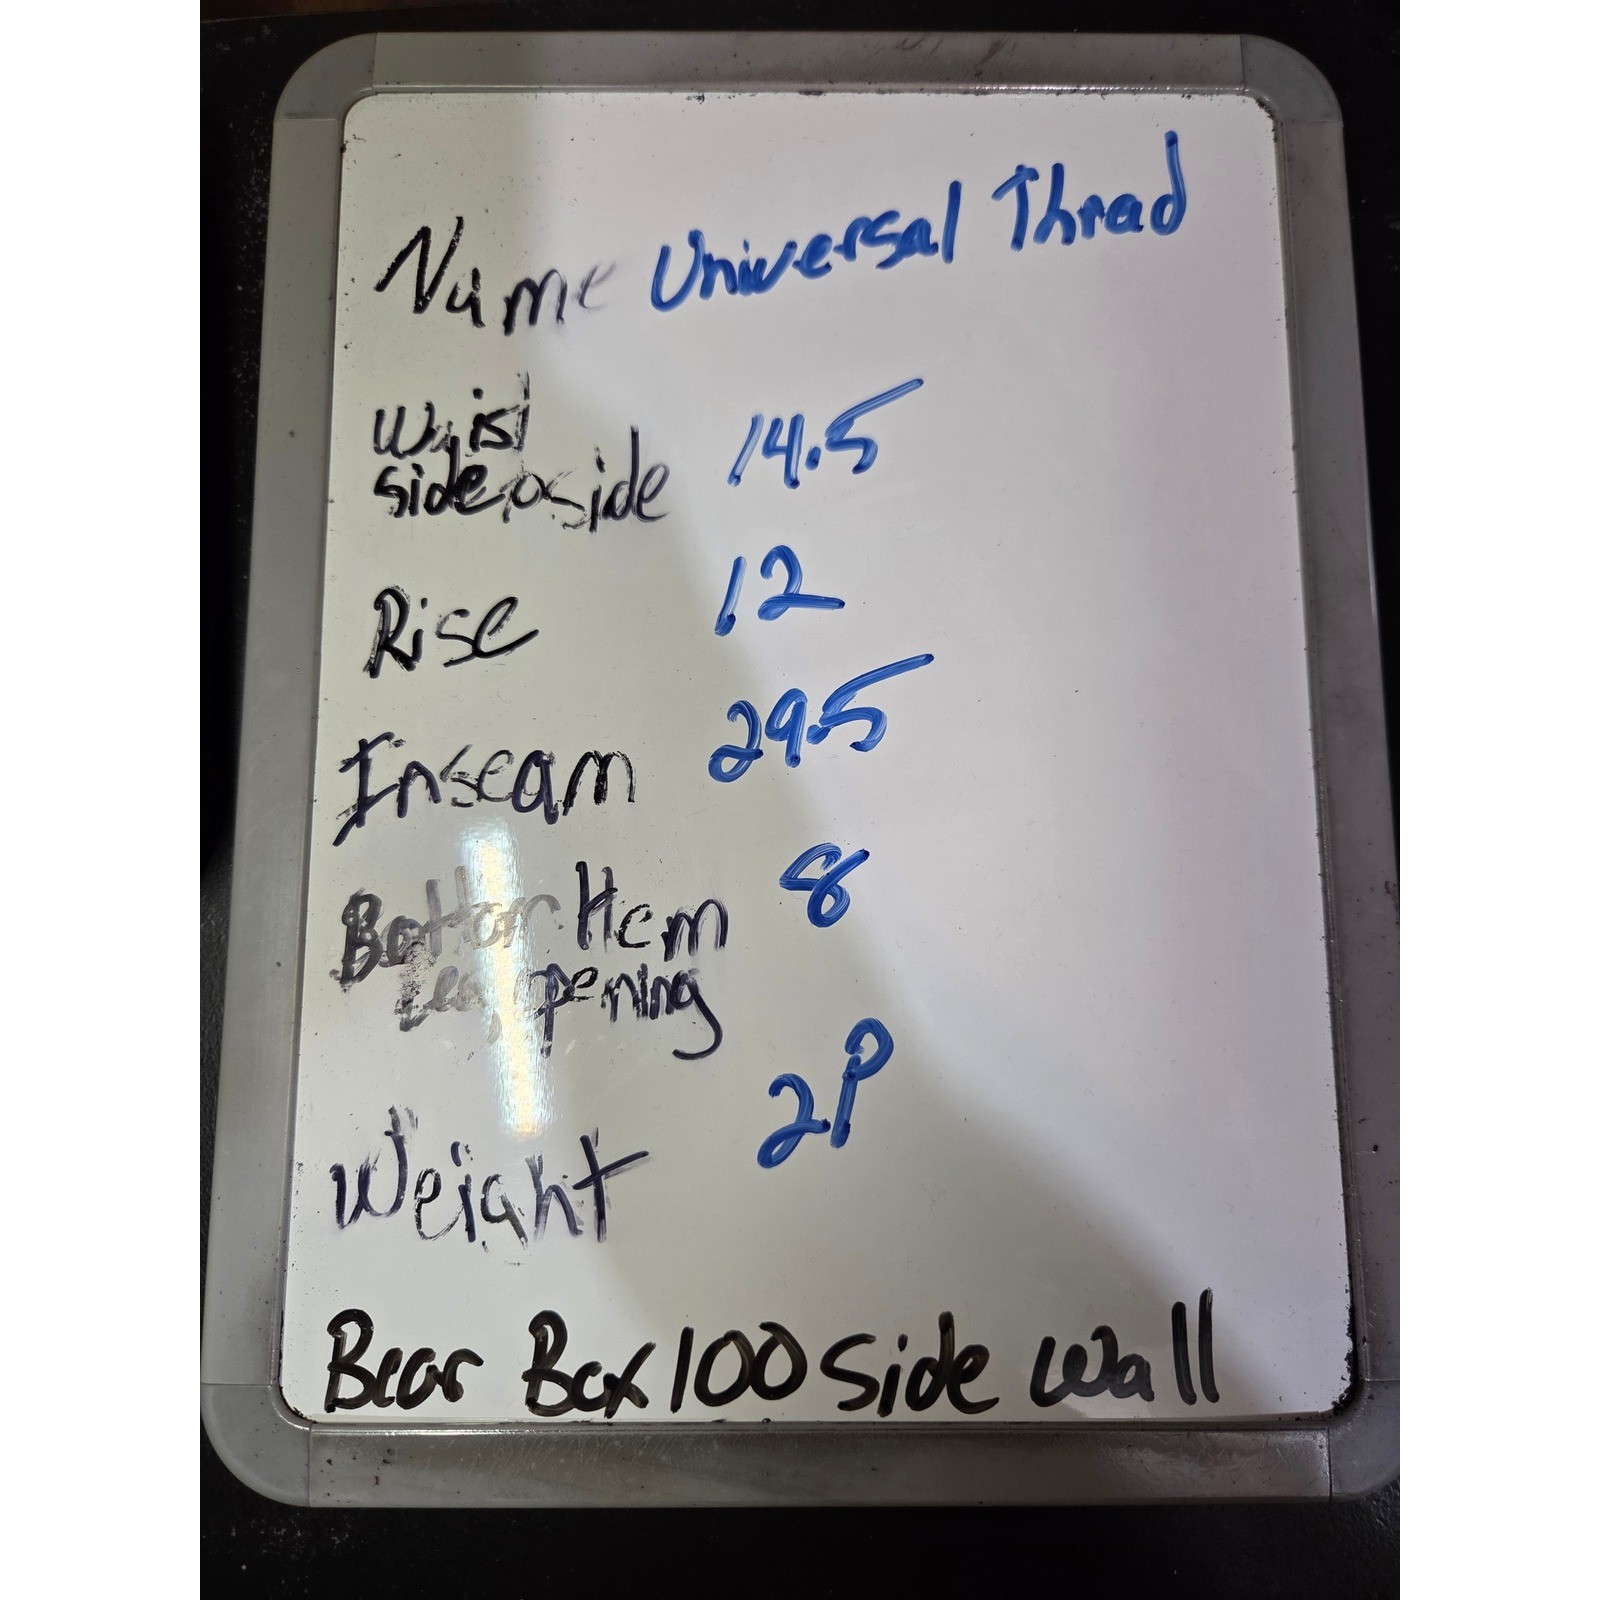 Name Universal Thread
Waist 14.5
side to side
Rise 12
Inseam 29.5
Bottom Hem 8
Leg opening
Weight 2P
Bear Box 100 Side Wall